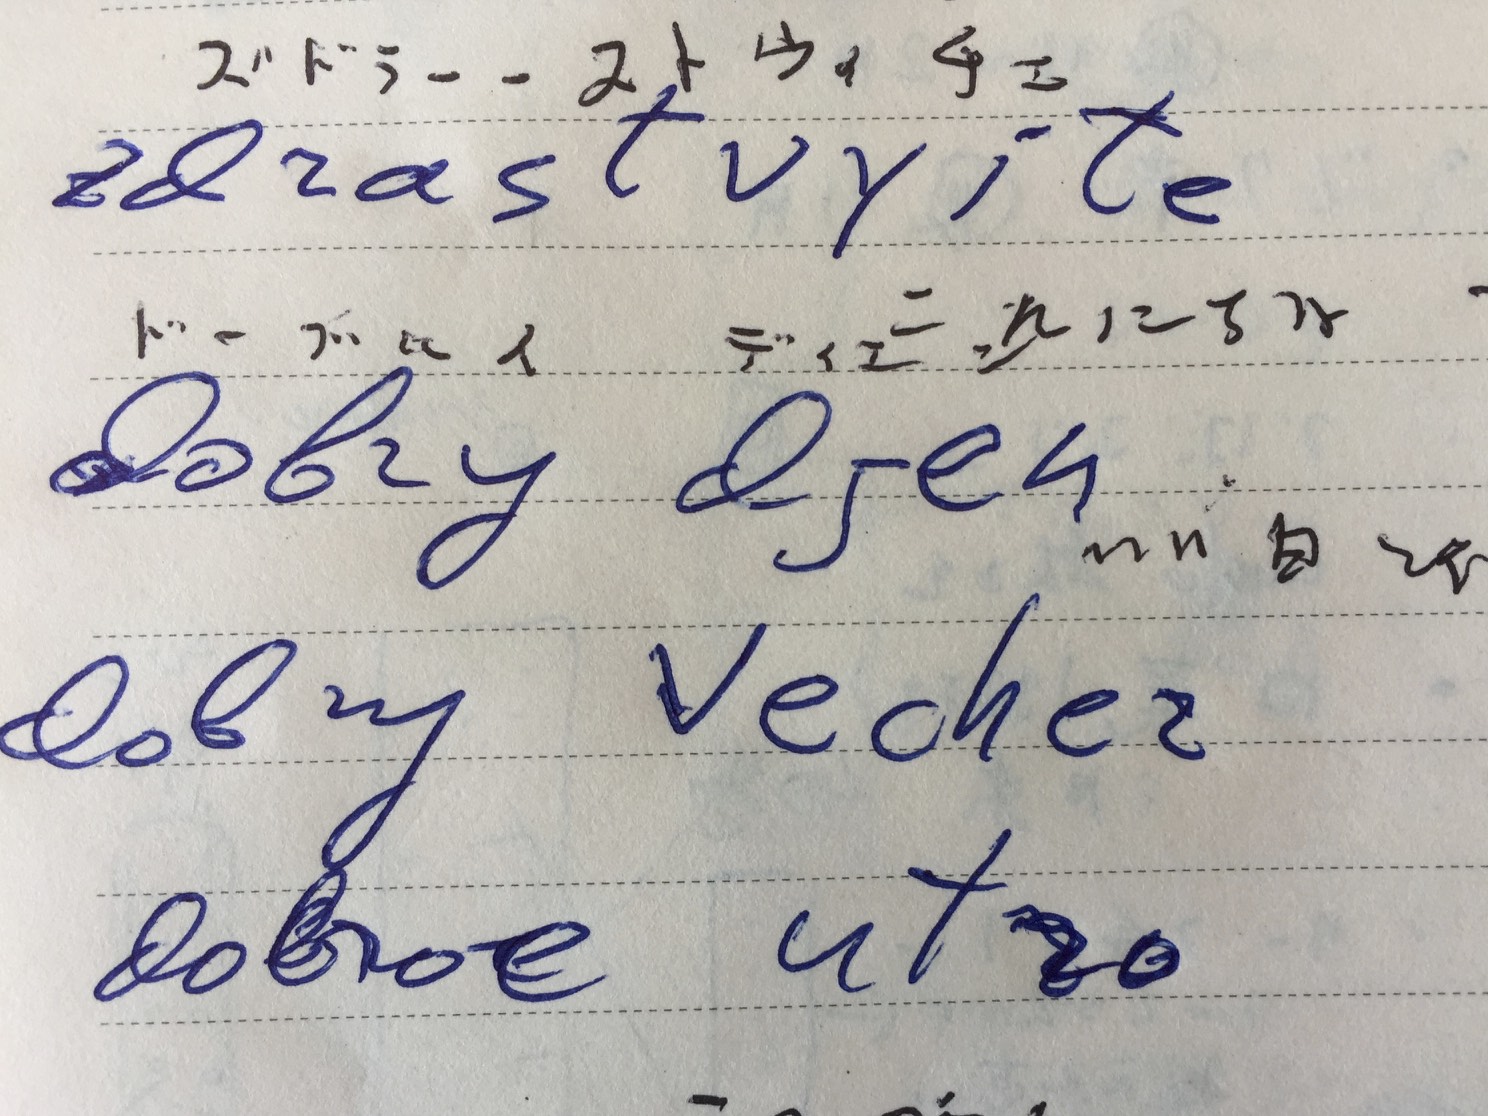 ズドラーースト ヴィ チェ
zdrastvyjte
ドーブルイ ディエニ
dobry djen
dobry vecher
dobroe utro